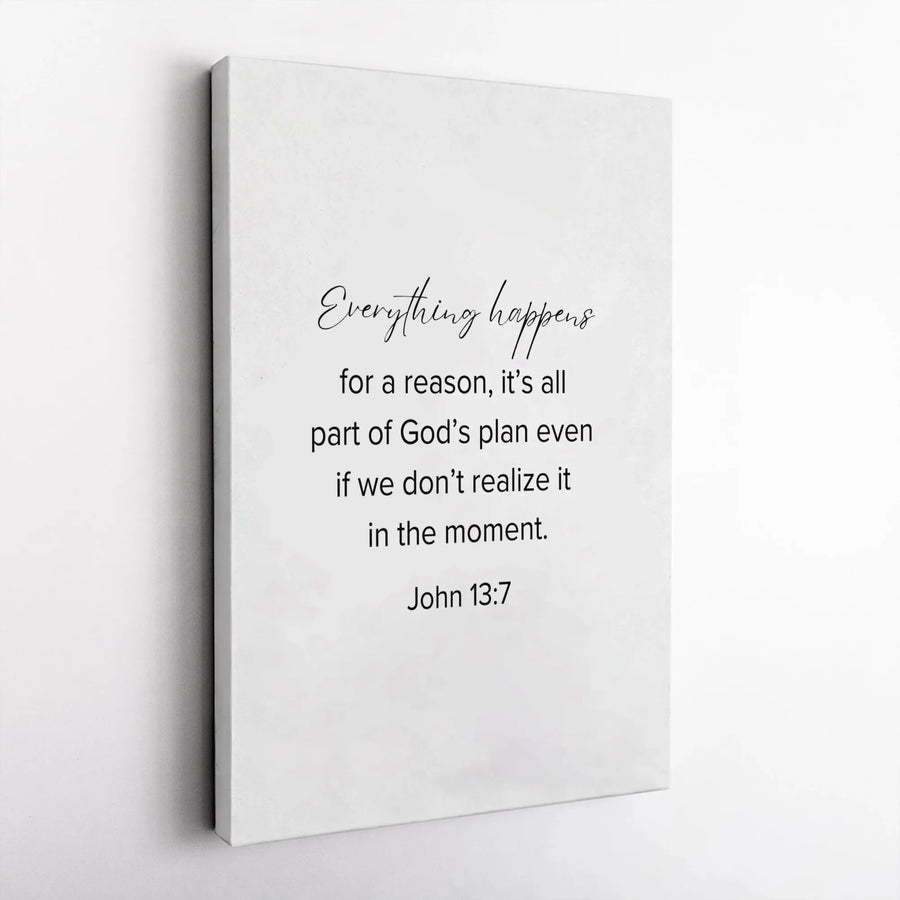 Everything happens
for a reason, it's all
part of God's plan even
if we don't realize it
in the moment.
John 13:7